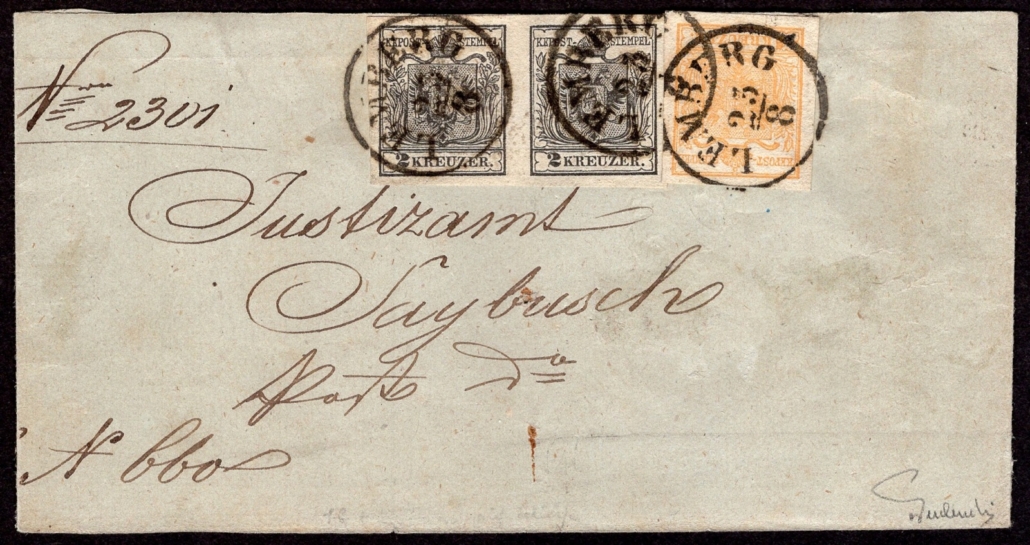 Nrm 2301
KKPOST-STEMPEL
2 KREUZER.
KKPOST-STEMPEL
2 KREUZER.
KKPOST-
LEMBERG
23/8
LEMBERG
23/8
LEMBERG
23/8
Justizamt
Saybusch
Post do
N 660